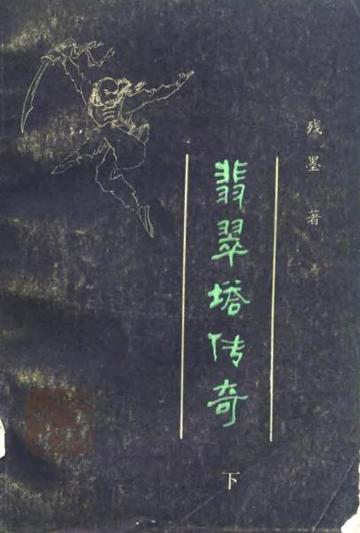 残墨著
翡翠塔传奇
下